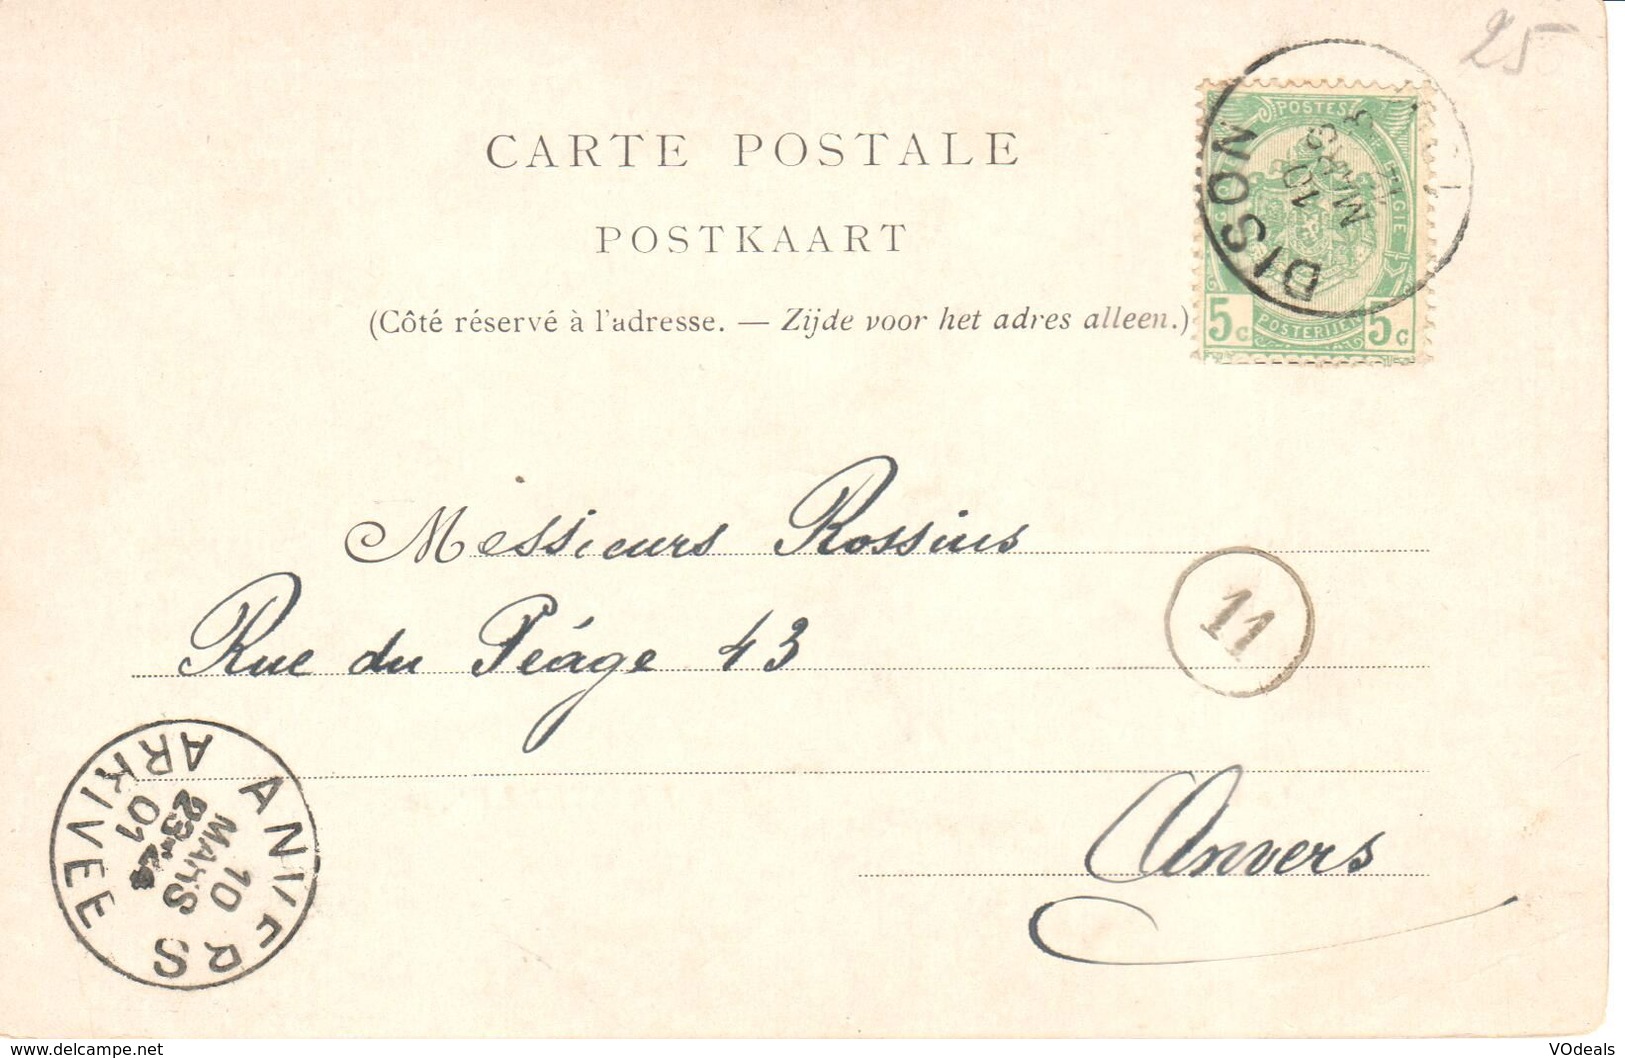 25
CARTE POSTALE
POSTKAART
(Côté réservé à l'adresse. — Zijde voor het adres alleen.)
POSTES
POSTERIJEN
5c 5c
DISON
10
MARS
Messieurs Rossius
Rue du Péage 43
11
Anvers
ANVERS
ARRIVEE
10
MARS
23
01
www.delcampe.net
VOdeals